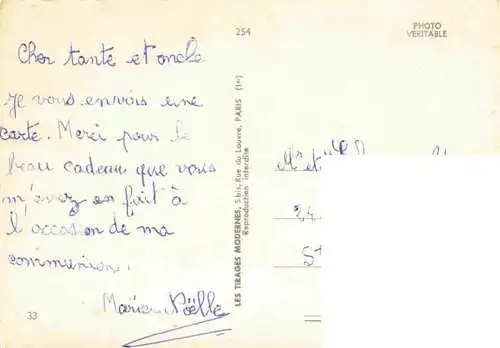 254
PHOTO
VERITABLE
Cher tante et oncle
Je vous envois une
carte. Merci pour le
beau cadeau que vous
m'avez en fait à
l'occasion de ma
communion.
Marie-Noëlle
33
LES TIRAGES MODERNES, 5 bis, Rue du Louvre, PARIS (1er)
Reproduction interdite
Mr et Me
24
S